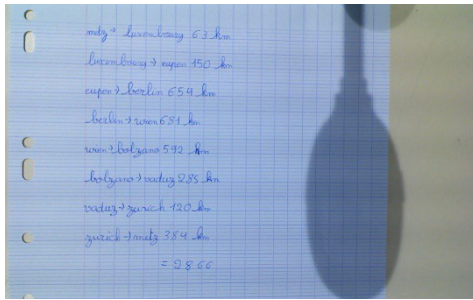 metz → luxembourg 63 km
luxembourg → eupen 150 km
eupen → berlin 654 km
berlin → wien 681 km
wien → bolzano 592 km
bolzano → vaduz 285 km
vaduz → zurich 120 km
zurich → metz 384 km
= 2866